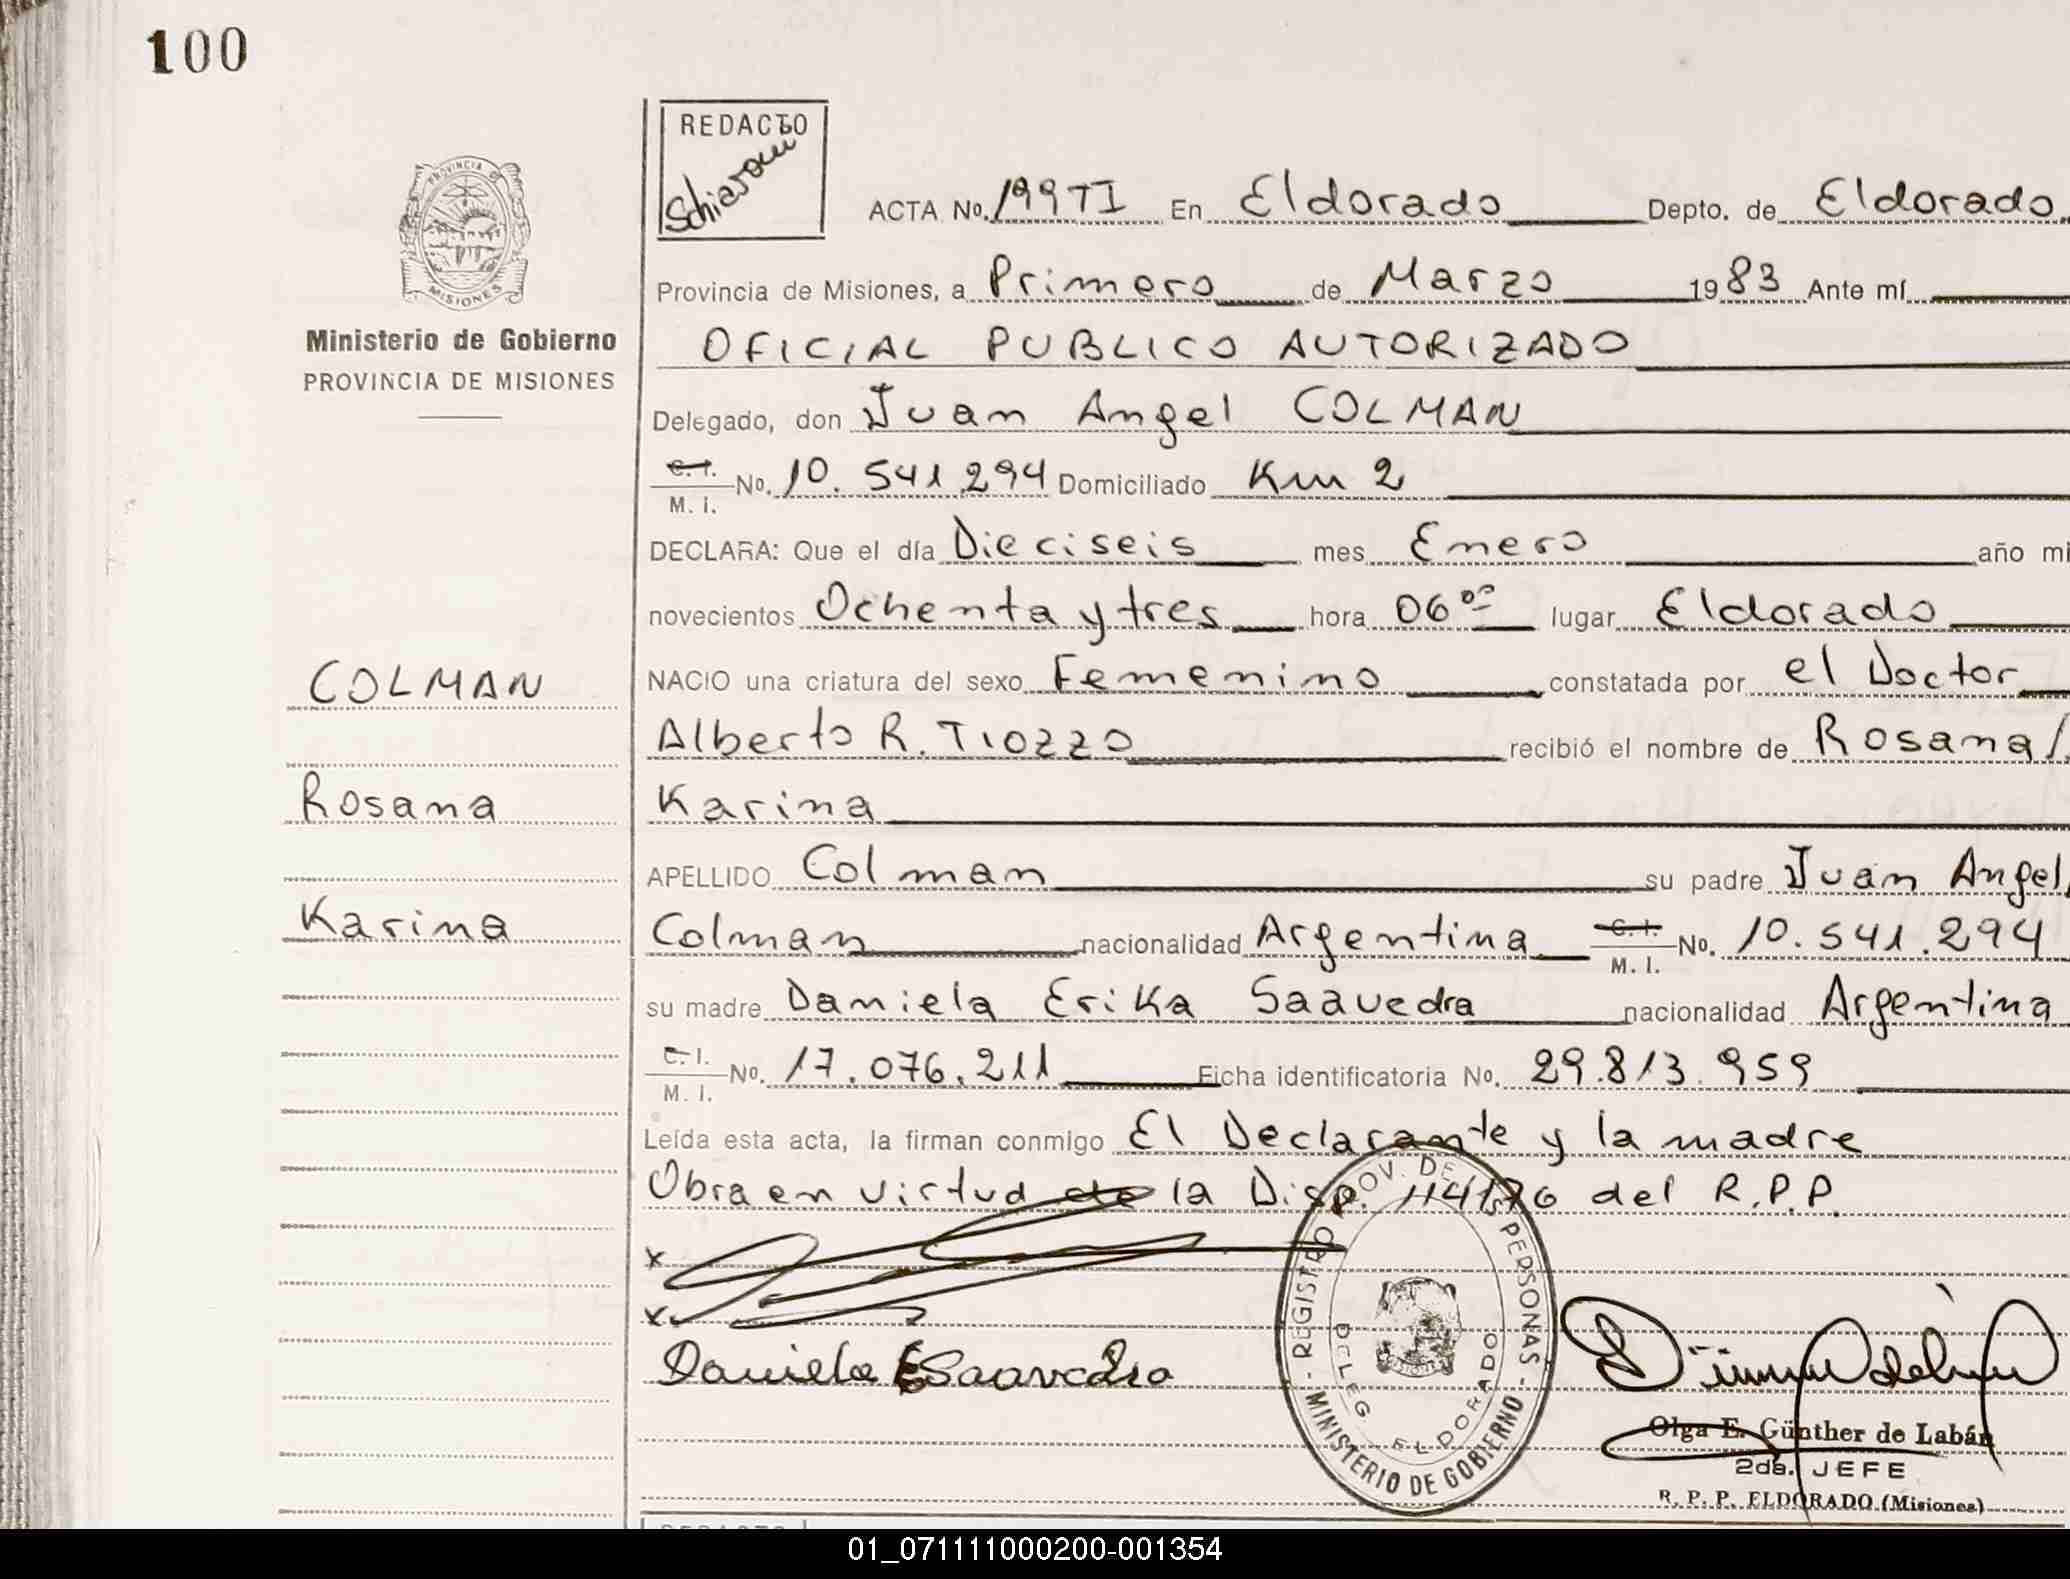 100
REDACTO
Schiavoni
PROVINCIA DE
MISIONES
Ministerio de Gobierno
PROVINCIA DE MISIONES
ACTA No. 199 TI En Eldorado Depto. de Eldorado
Provincia de Misiones, a Primero de Marzo 1983 Ante mí
OFICIAL PUBLICO AUTORIZADO
Delegado, don Juan Angel COLMAN
C. I. M. I. No. 10.541.294 Domiciliado Km 2
DECLARA: Que el día Dieciseis mes Enero año mi
novecientos Ochenta y tres hora 06 00 lugar Eldorado
COLMAN
NACIO una criatura del sexo Femenino constatada por el Doctor
Alberto R. Tiozzo recibió el nombre de Rosana/
Rosana
Karina
APELLIDO Colman su padre Juan Angel
Karina
Colman nacionalidad Argentina C. I. M. I. No. 10.541.294
su madre Daniela Erika Saavedra nacionalidad Argentina
C. I. M. I. No. 17.076.211 Ficha identificatoria No. 29.813.959
Leída esta acta, la firman conmigo El Declarante y la madre
Obra en virtud de la Disp. 114/76 del R.P.P.
x
x
Daniela E Saavedra
REGISTRO PROV. DE LAS PERSONAS
DELEG. ELDORADO
MINISTERIO DE GOBIERNO
Olga E. Günther de Labán
2da. JEFE
R. P. P. ELDORADO (Misiones)
01_071111000200-001354